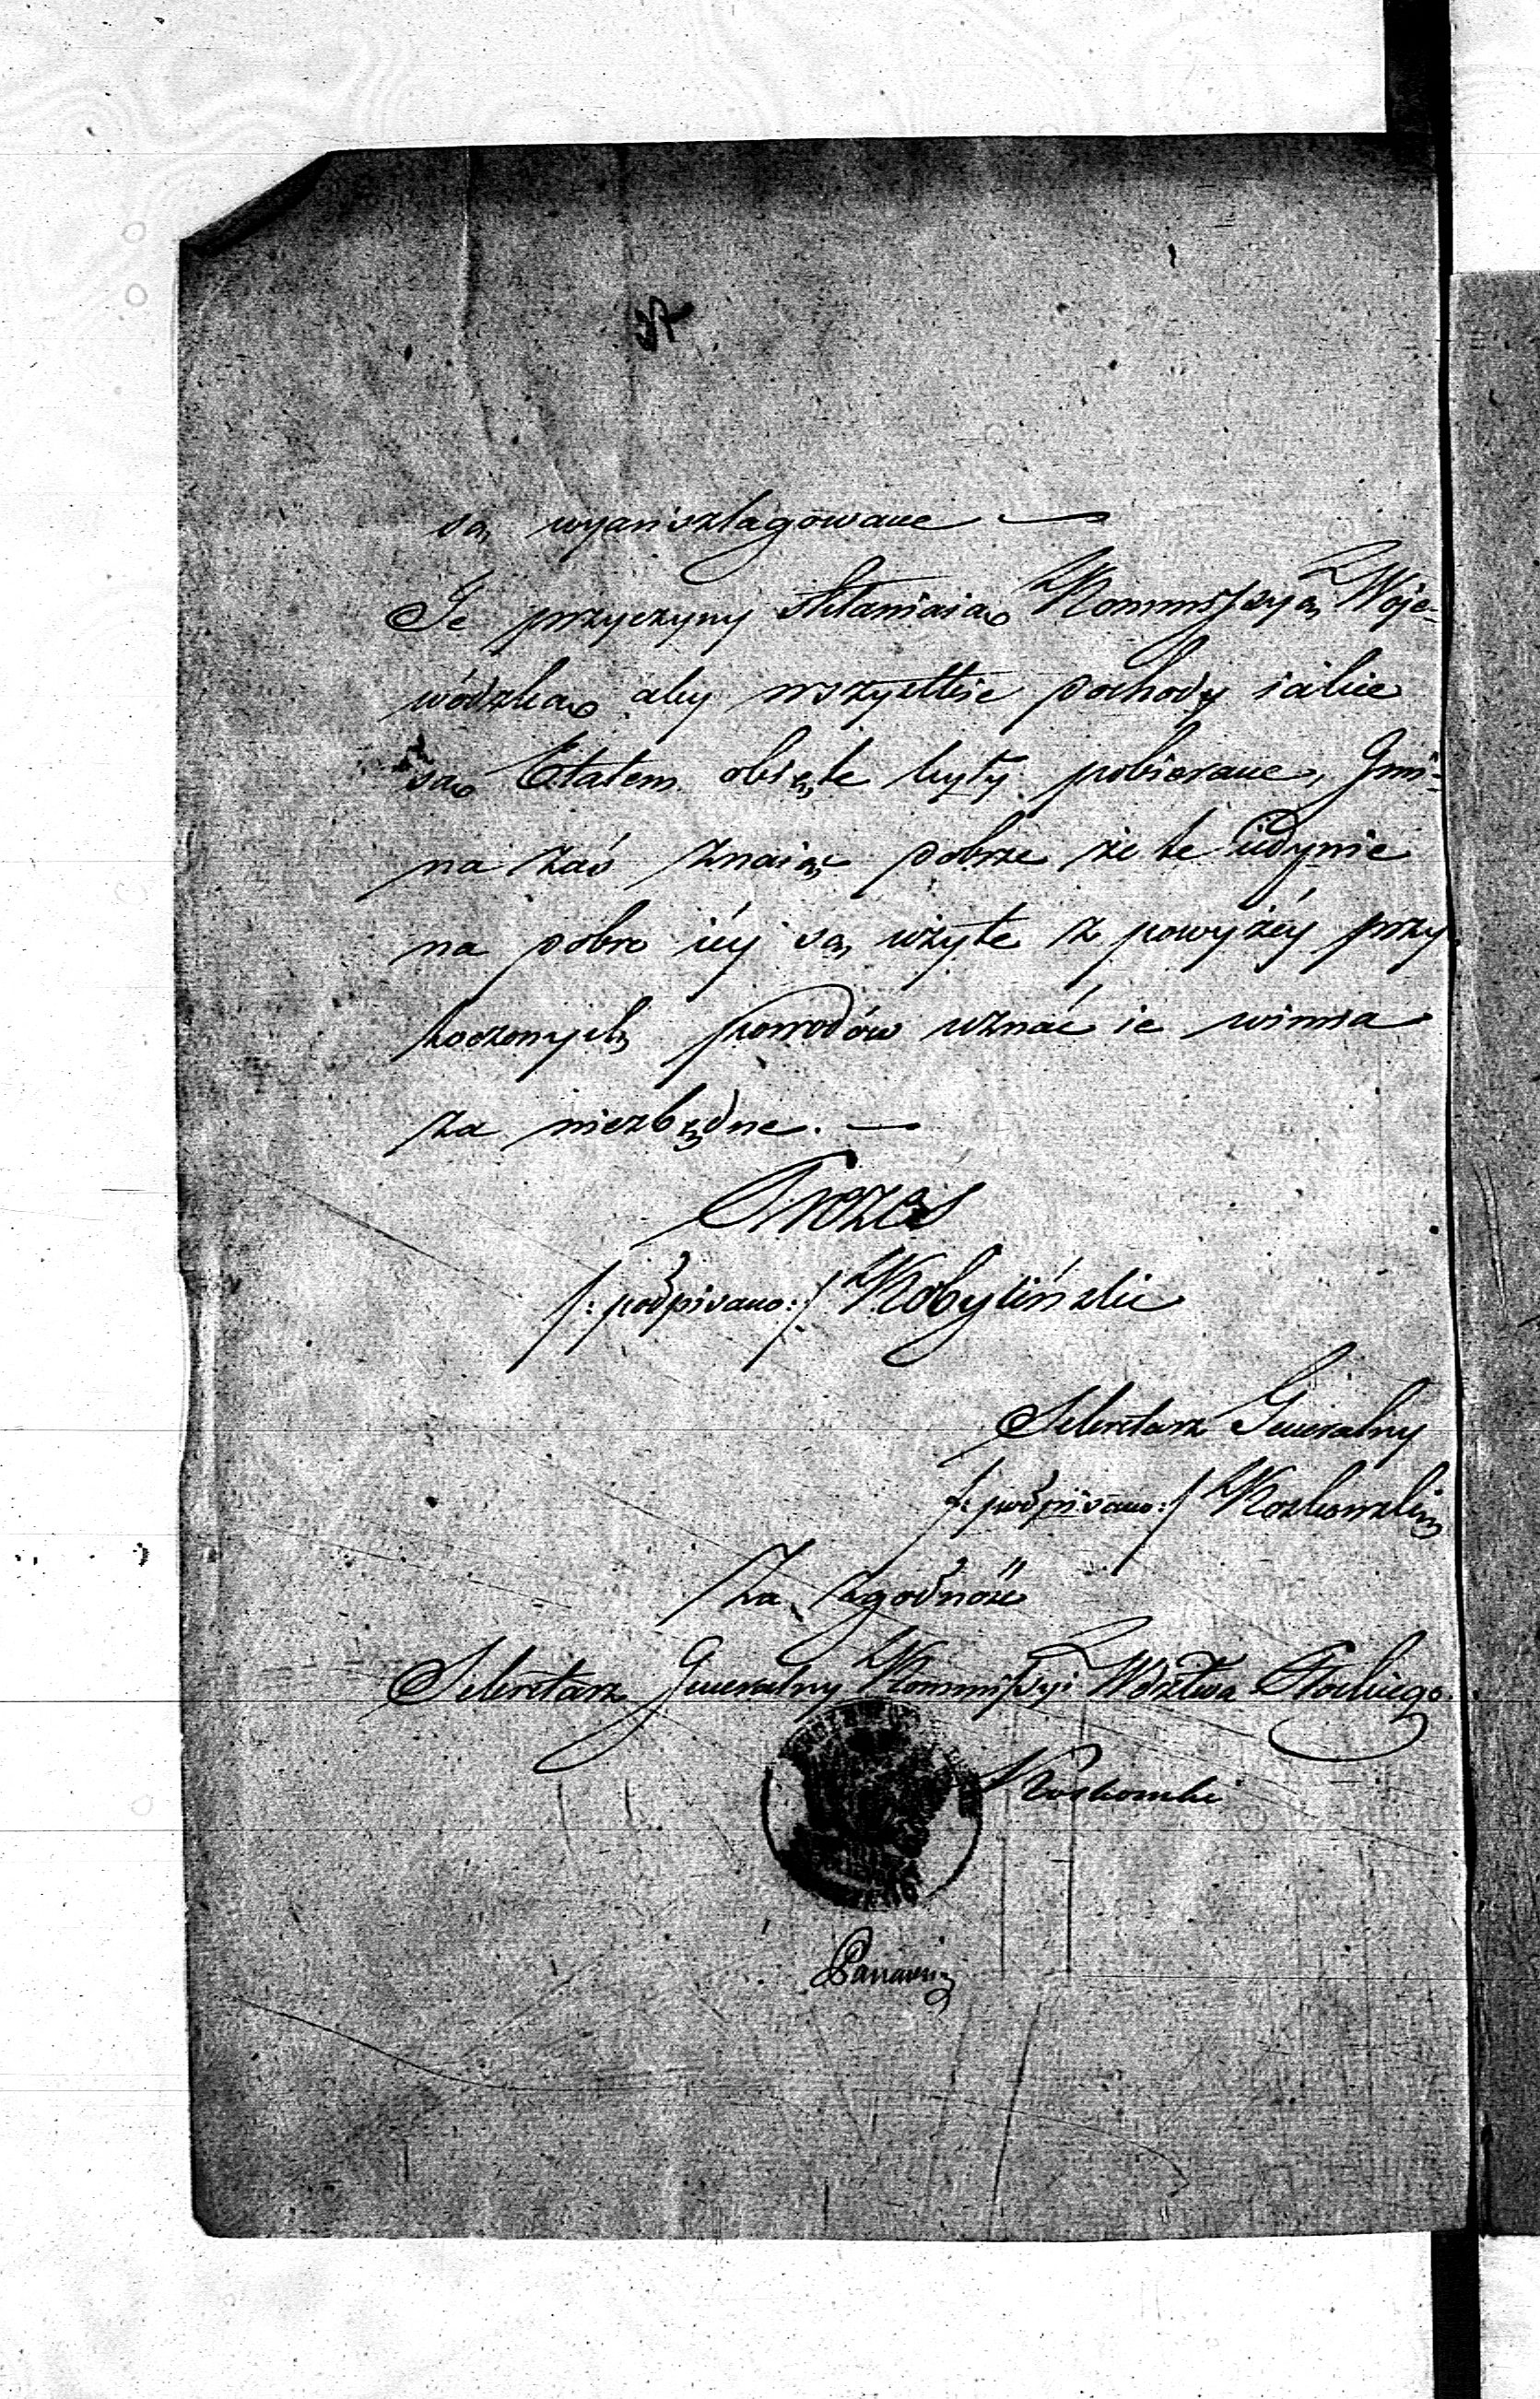 są wyanszlagowane —
Te przyczyny skłaniaią Kommissyą Woje-
wódzką aby wszystkie dochody iakie
są Etatem obięte były pobierane, Gmi-
na zaś znaiąc dobrze że te iedynie
na dobro iéy są użyte z powyżéy przy
toczonych powodów uznać ie winna
za niezbędne. —
Prezes
/: podpisano :/ Kobyliński
Sekretarz Generalny
/: podpisano :/ Koskowski
Za zgodność
Sekretarz Generalny Kommissyi Wdztwa Płockiego
Koskowski